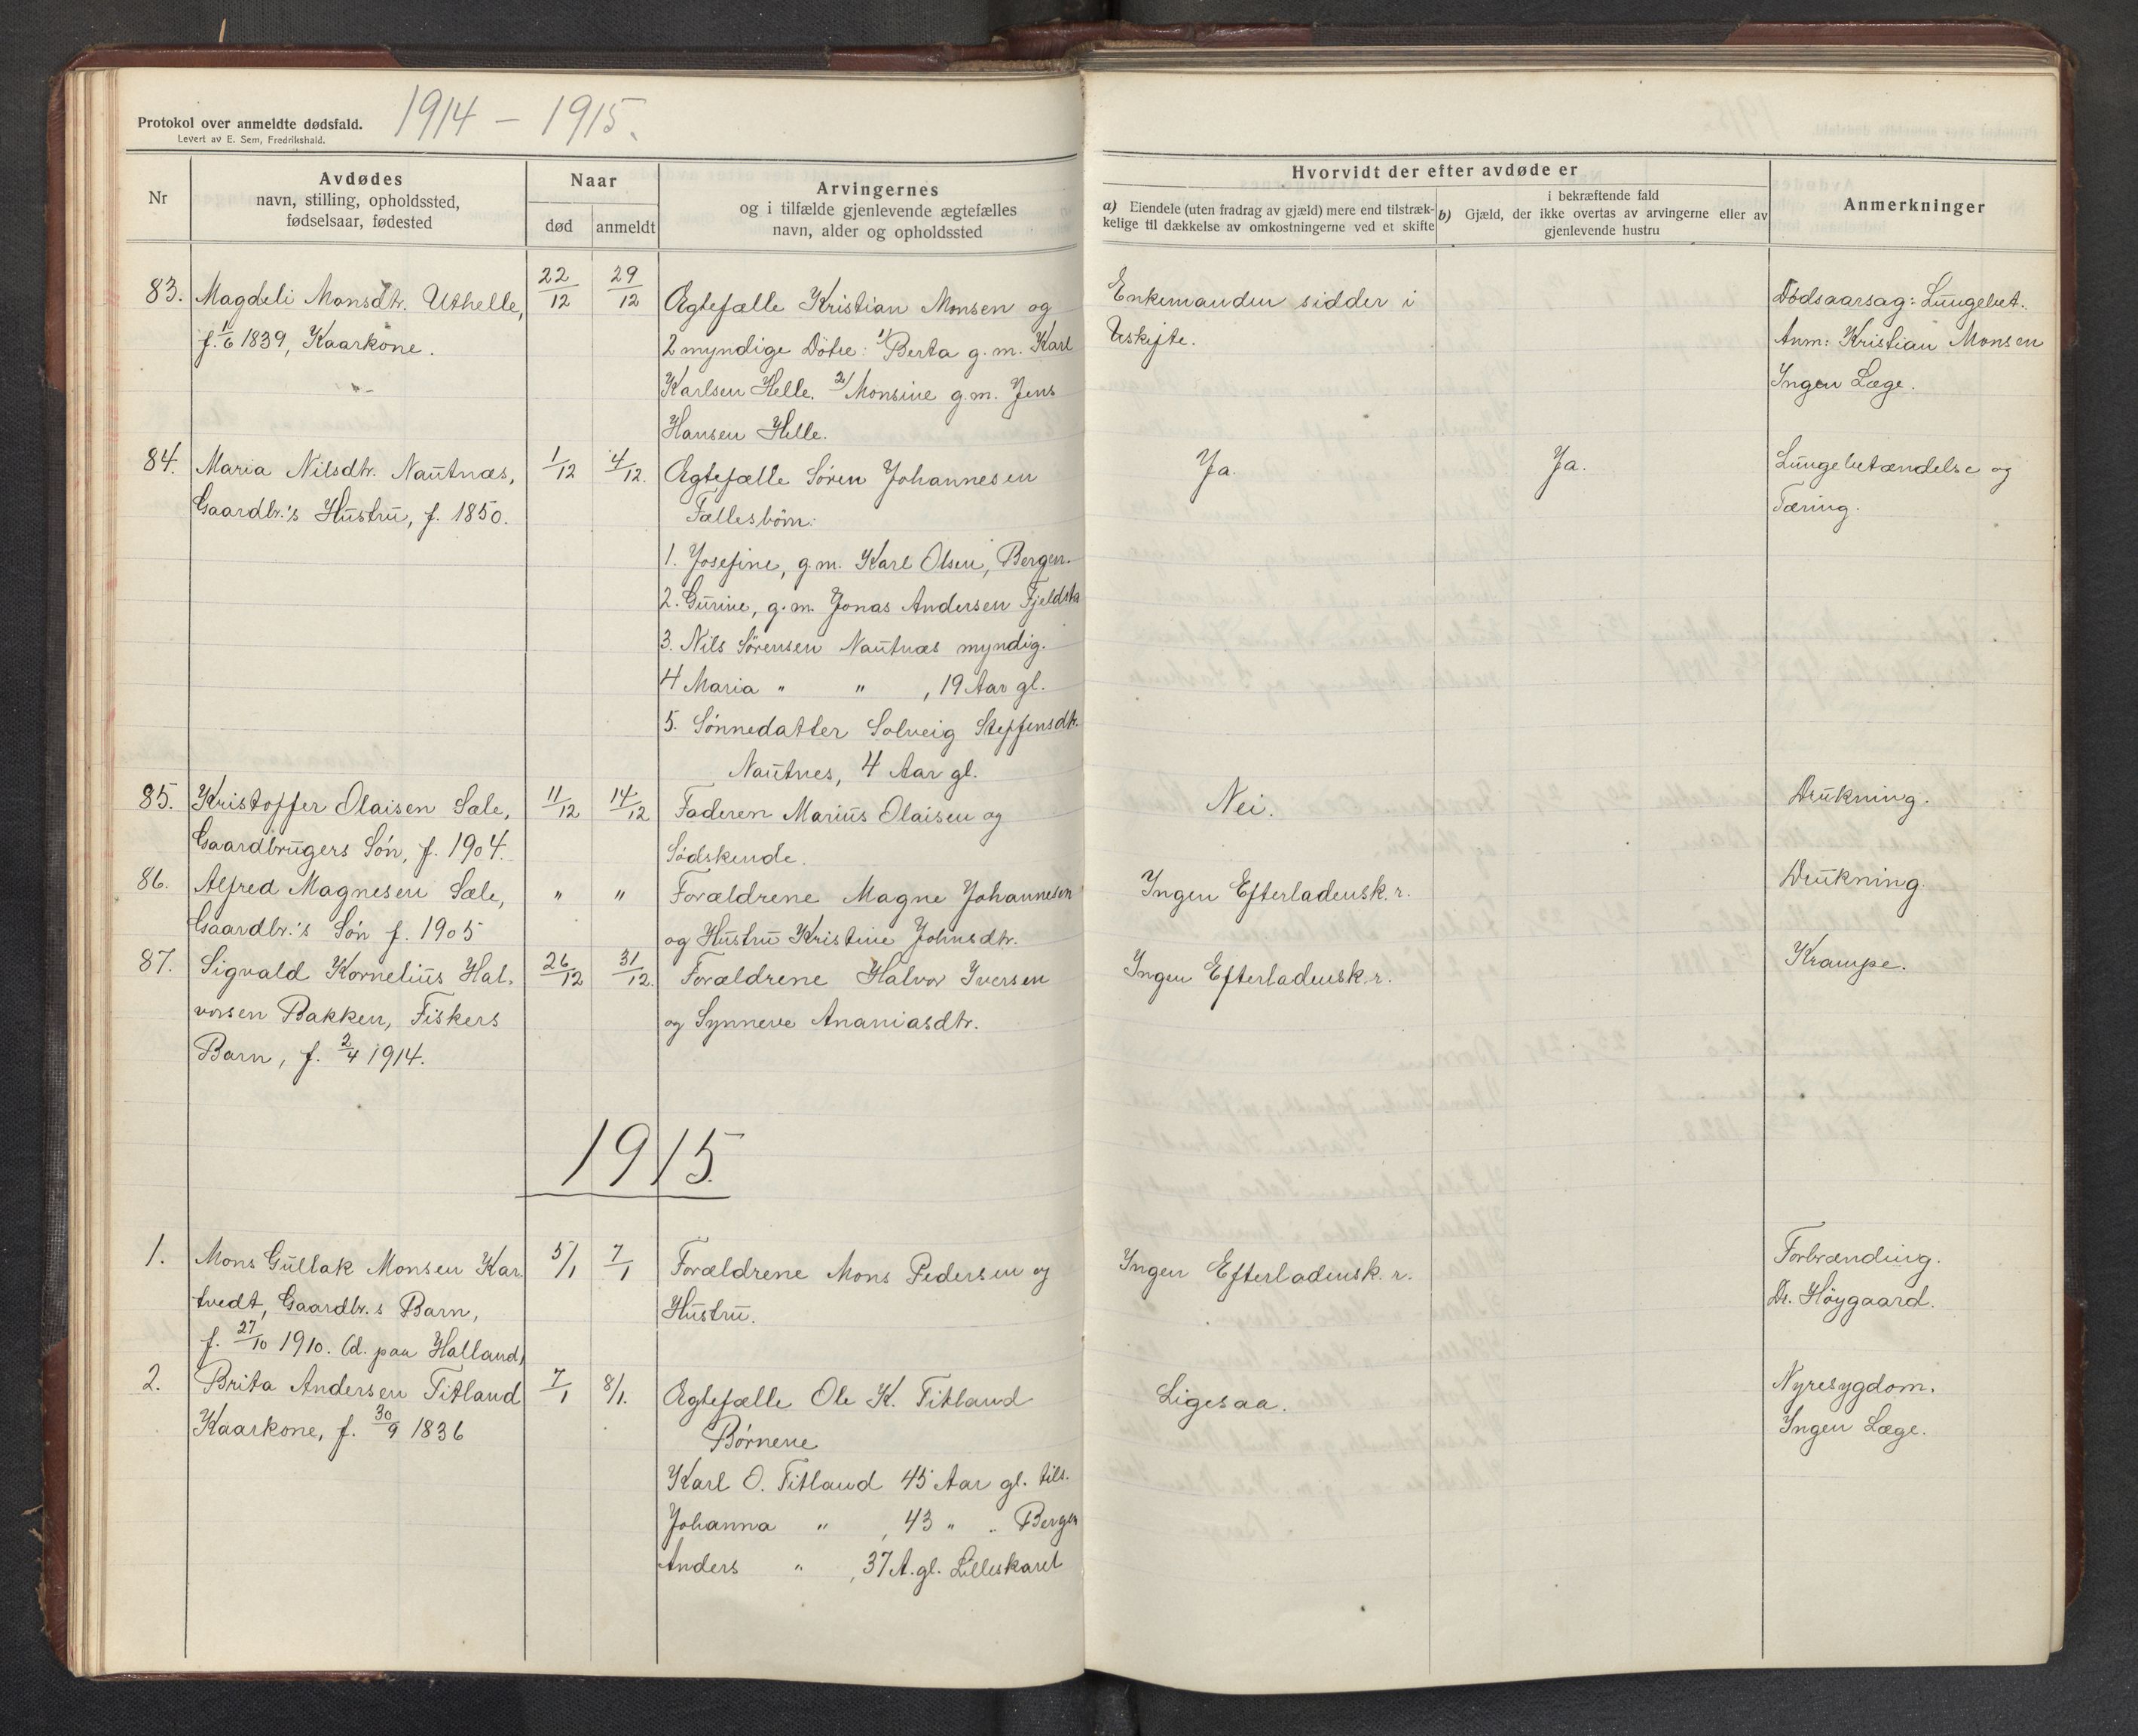 1914 – 1915.
Protokol over anmeldte dødsfald.
Levert av E. Sem, Fredrikshald.
Nr
Avdødes
navn, stilling, opholdssted,
fødselsaar, fødested
Naar
død
anmeldt
Arvingernes
og i tilfælde gjenlevende ægtefælles
navn, alder og opholdssted
Hvorvidt der efter avdøde er
a) Eiendele (uten fradrag av gjæld) mere end tilstræk-
kelige til dækkelse av omkostningerne ved et skifte
i bekræftende fald
b) Gjæld, der ikke overtas av arvingerne eller av
gjenlevende hustru
Anmerkninger
83.
Magdeli Monsdtr. Uthelle,
f. 11/6 1839, Kaarkone.
22/12
29/12
Ægtefælle Kristian Monsen og
2 myndige Døtre: 1/ Berta g. m. Karl
Karlsen Helle. 2/ Monsine g. m. Jens
Hansen Helle.
Enkemanden sidder i
Uskifte.
Dødsaarsag: Lungebet.
Anm: Kristian Monsen
Ingen Læge.
84.
Maria Nilsdtr. Nautnæs,
Gaardbr.'s Hustru, f. 1850.
1/12
4/12.
Ægtefælle Søren Johannesen
Fællesbörn:
1. Josefine, g. m. Karl Olsen, Bergen.
2. Gurine, g. m. Jonas Andersen Fjeldsta
3. Nils Sörensen Nautnæs myndig.
4 Maria " " , 19 Aar gl.
5. Sönnedatter Solveig Steffensdtr.
Nautnes, 4 Aar gl.
Ja.
Ja.
Lungebetændelse og
Tæring.
85.
Kristoffer Olaisen Sæle,
Gaardbrugers Sön, f. 1904.
11/12
14/12
Faderen Marius Olaisen og
Södskende.
Nei.
Drukning.
86.
Alfred Magnesen Sæle,
Gaardbr.'s Sön f. 1905
"
"
Forældrene Magne Johannesen
og Hustru Kristine Johnsdtr.
Ingen Efterladensk. r.
Drukning.
87.
Sigvald Kornelius Hal-
vorsen Bakken, Fiskers
Barn, f. 2/4 1914.
26/12
31/12.
Forældrene Halvor Iversen
og Synneve Ananiasdtr.
Ingen Efterladensk. r.
Krampe.
1915.
1.
Mons Gullak Monsen Kar-
tvedt, Gaardbr.s Barn,
f. 27/10 1910. (d. paa Halland)
5/1
7/1
Forældrene Mons Pedersen og
Hustru.
Ingen Efterladensk. r.
Forbrænding.
Dr. Höygaard.
2.
Brita Andersen Titland
Kaarkone, f. 30/9 1836
7/1
8/1.
Ægtefælle Ole K. Titland
Börnene
Karl O. Titland 45 Aar gl. tils.
Johanna " , 43 " " Bergen
Anders " , 37 A. gl. Lilleskaret
Ligesaa.
Nyresygdom.
Ingen Læge.